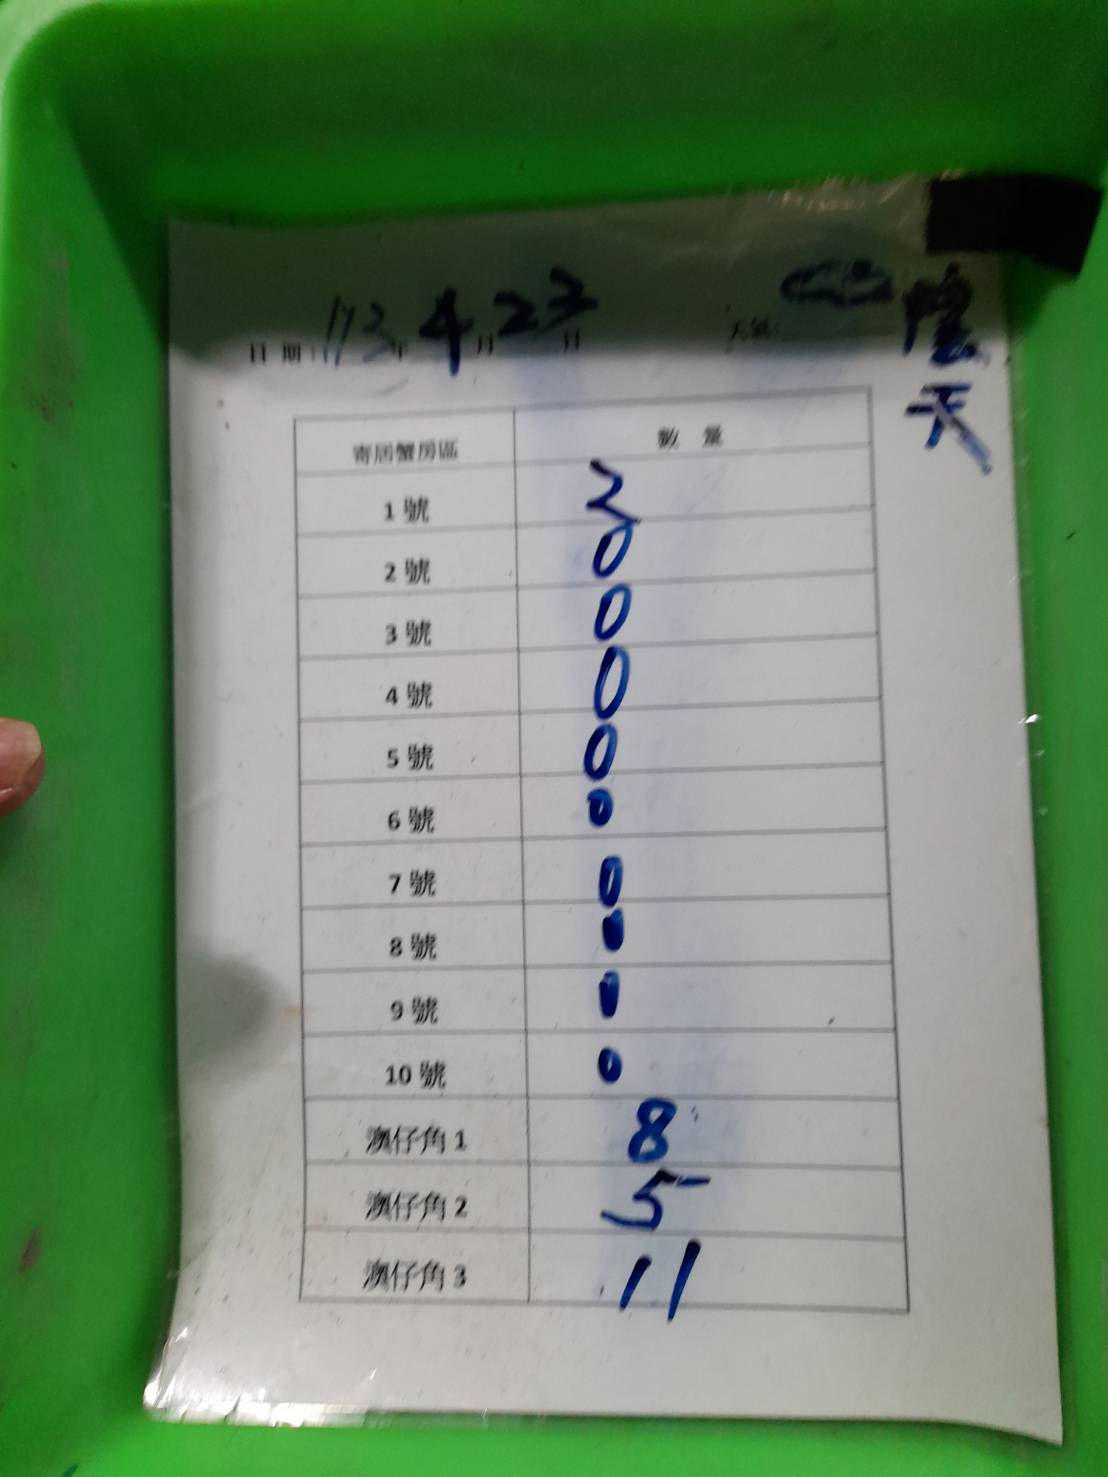 日 期：113年4月23日 天氣： 陰天
寄居蟹房區 數 量
1 號 2
2 號 0
3 號 0
4 號 0
5 號 0
6 號 0
7 號 0
8 號 0
9 號 0
10 號 0
澳仔角 1 8
澳仔角 2 5
澳仔角 3 11